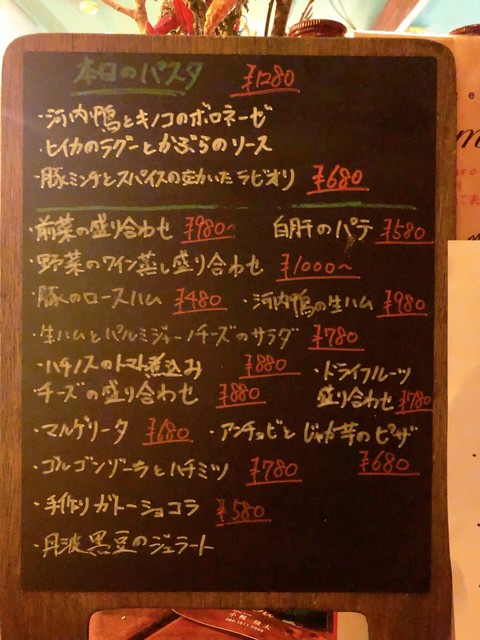 本日のパスタ ¥1280
・河内鴨とキノコのボロネーゼ
・ヒイカのラグーとかぶらのソース
・豚ミンチとスパイスの効いたラビオリ ¥680
・前菜の盛り合わせ ¥980~ 白肝のパテ ¥580
・野菜のワイン蒸し盛り合わせ ¥1000~
・豚のロースハム ¥480 ・河内鴨の生ハム ¥980
・生ハムとパルミジャーノチーズのサラダ ¥780
・ハチノスのトマト煮込み ¥880 ・ドライフルーツ
・チーズの盛り合わせ ¥880 盛り合わせ ¥780
・マルゲリータ ¥680 ・アンチョビとじゃが芋のピザ
・ゴルゴンゾーラとハチミツ ¥780 ¥680
・手作りガトーショコラ ¥580
・丹波黒豆のジェラート